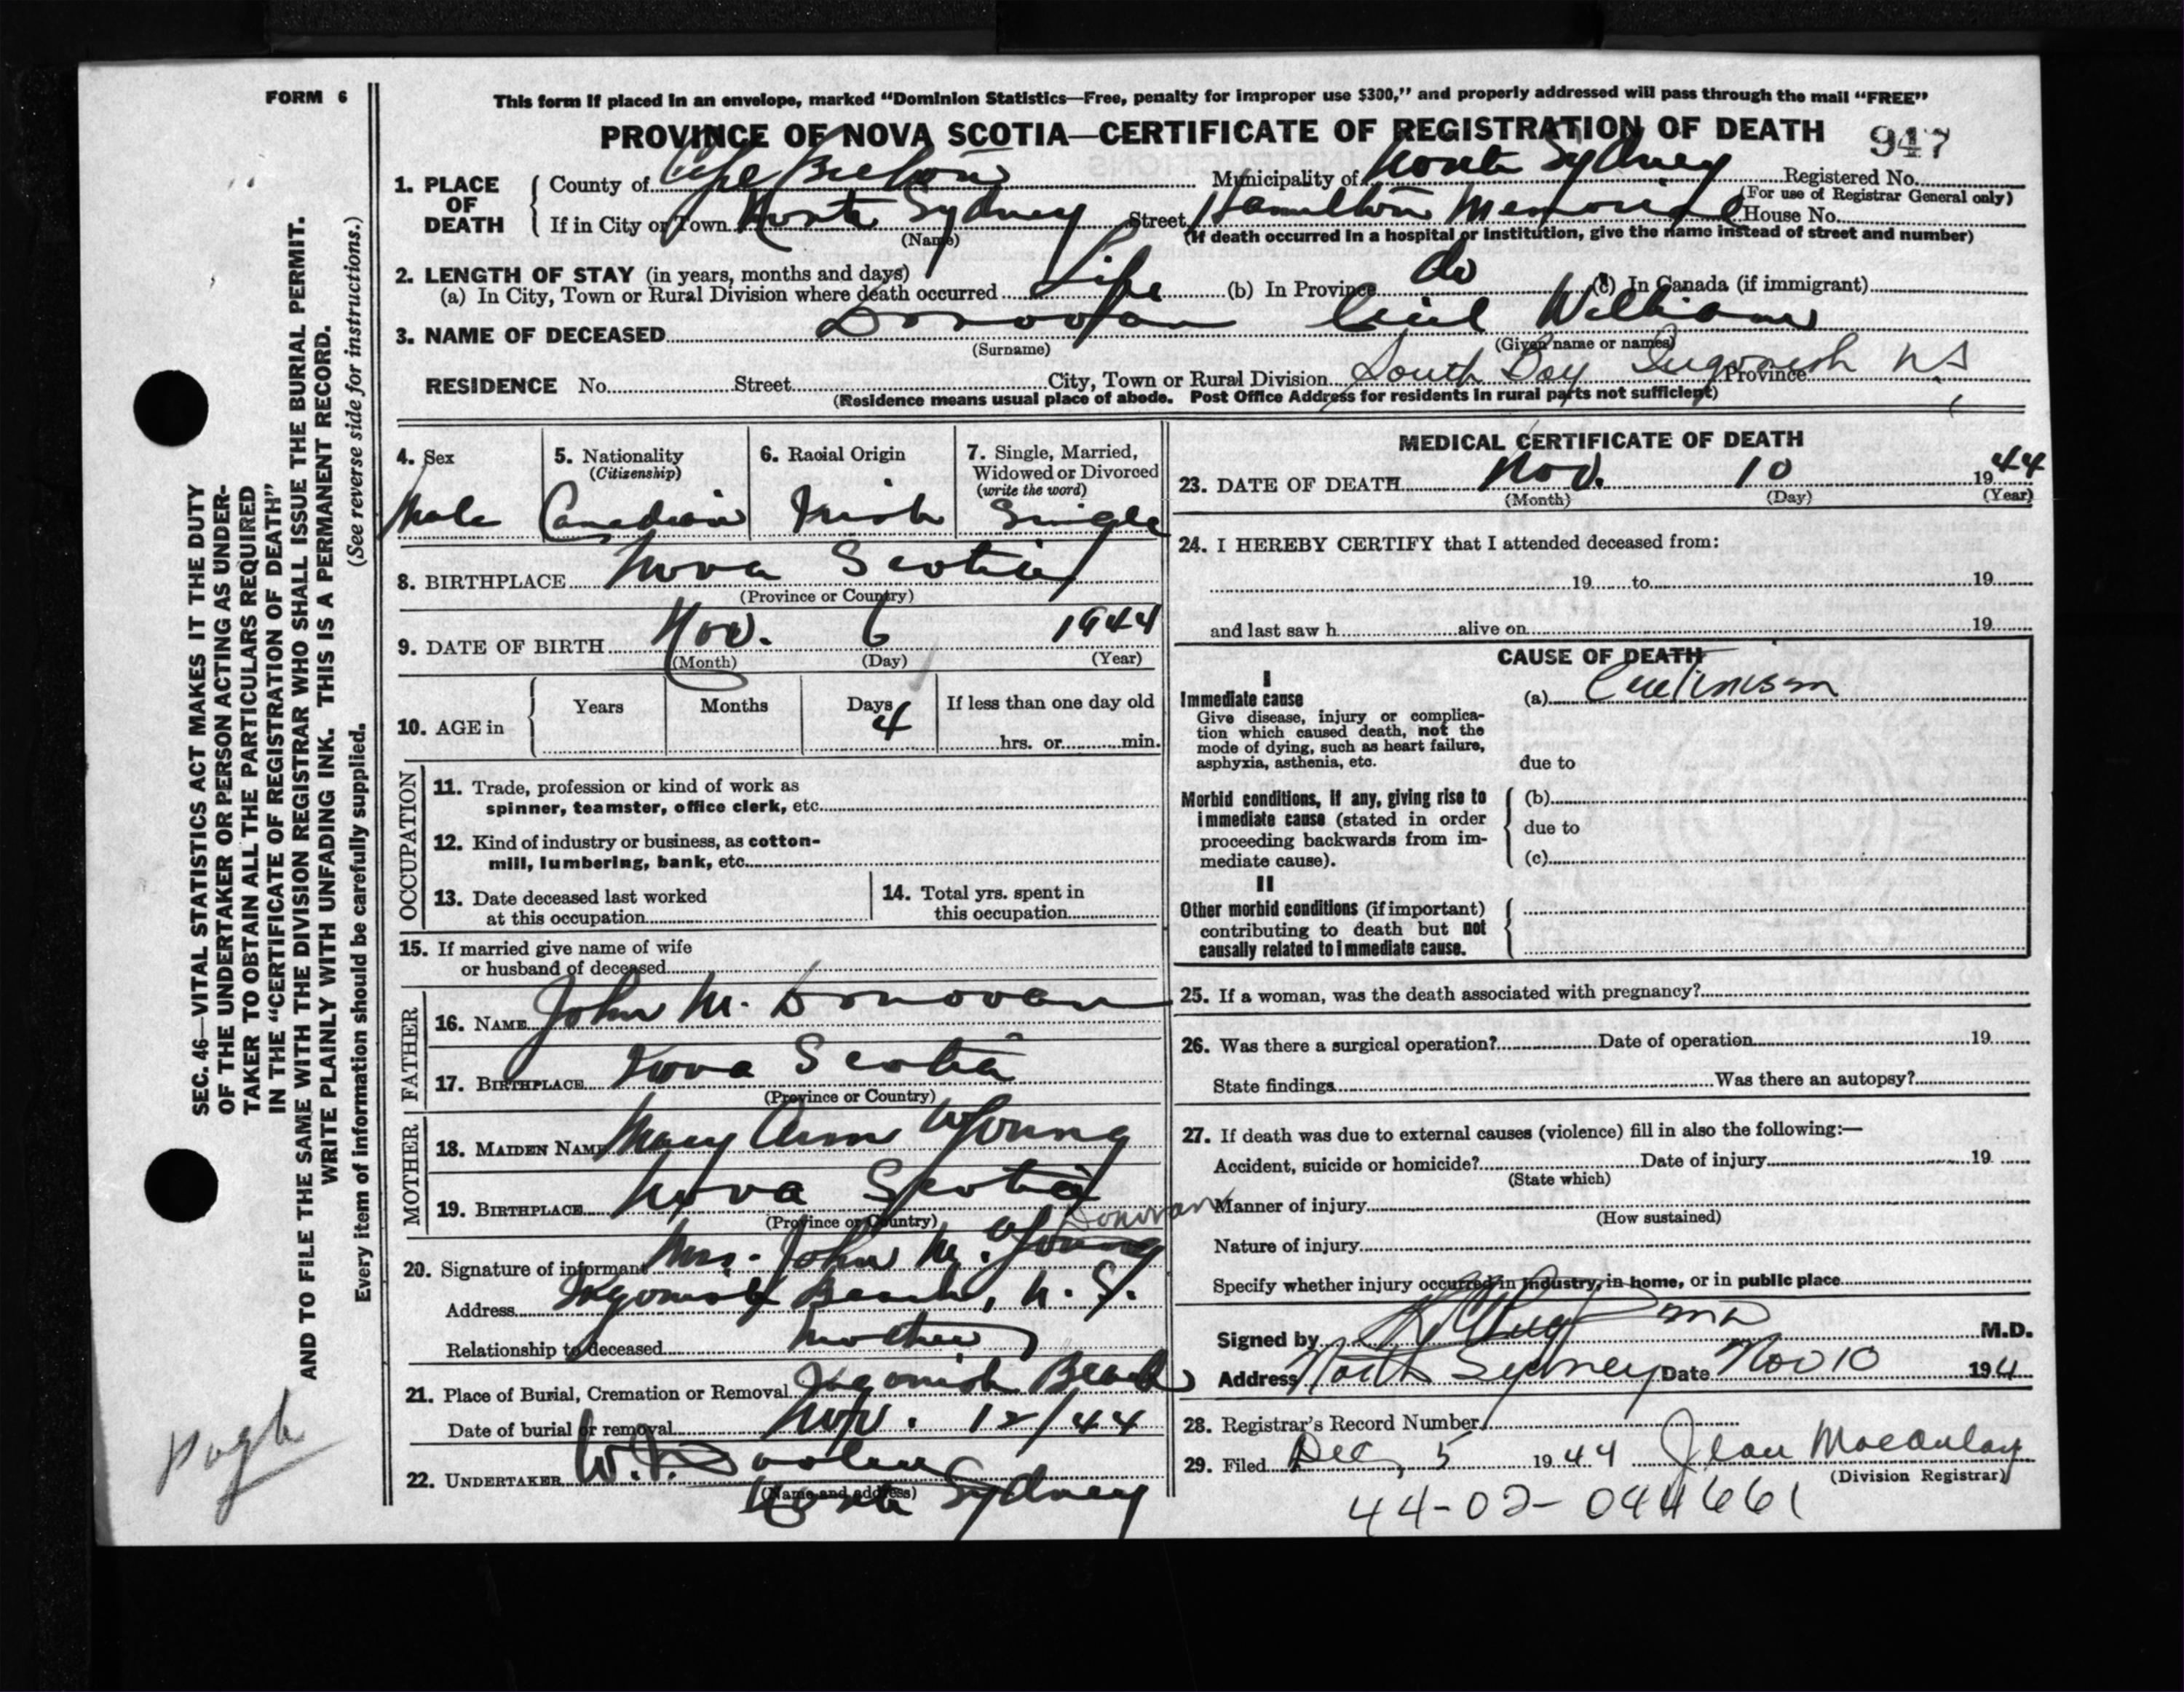 FORM 6
This form if placed in an envelope, marked “Dominion Statistics—Free, penalty for improper use $300,” and properly addressed will pass through the mail “FREE”
PROVINCE OF NOVA SCOTIA—CERTIFICATE OF REGISTRATION OF DEATH 947
1. PLACE OF DEATH
County of Cape Breton Municipality of North Sydney Registered No.
(For use of Registrar General only)
If in City or Town North Sydney Street Hamilton Memorial House No.
(Name) (If death occurred in a hospital or institution, give the name instead of street and number)
2. LENGTH OF STAY (in years, months and days)
(a) In City, Town or Rural Division where death occurred Life (b) In Province do (c) In Canada (if immigrant)
3. NAME OF DECEASED Donovan Cecil William
(Surname) (Given name or names)
RESIDENCE No. Street City, Town or Rural Division South Bay Ingonish Province N S
(Residence means usual place of abode. Post Office Address for residents in rural parts not sufficient)
4. Sex
Male
5. Nationality
(Citizenship)
Canadian
6. Racial Origin
Irish
7. Single, Married,
Widowed or Divorced
(write the word)
Single
8. BIRTHPLACE Nova Scotia
(Province or Country)
9. DATE OF BIRTH Nov. 6 1944
(Month) (Day) (Year)
10. AGE in
Years Months Days If less than one day old
4 hrs. or min.
OCCUPATION
11. Trade, profession or kind of work as
spinner, teamster, office clerk, etc.
12. Kind of industry or business, as cotton-
mill, lumbering, bank, etc.
13. Date deceased last worked
at this occupation
14. Total yrs. spent in
this occupation
15. If married give name of wife
or husband of deceased
FATHER
16. NAME John M. Donovan
17. BIRTHPLACE Nova Scotia
(Province or Country)
MOTHER
18. MAIDEN NAME Mary Ann Young
19. BIRTHPLACE Nova Scotia
(Province or Country)
Donovan
20. Signature of informant Mrs. John M. Young
Address Ingonish Beach, N. S.
Relationship to deceased mother
21. Place of Burial, Cremation or Removal Ingonish Beach
Date of burial or removal Nov. 12/44
22. UNDERTAKER W. J. Dooley
(Name and address)
North Sydney
MEDICAL CERTIFICATE OF DEATH
23. DATE OF DEATH Nov. 10 1944
(Month) (Day) (Year)
24. I HEREBY CERTIFY that I attended deceased from:
19 to 19
and last saw h alive on 19
CAUSE OF DEATH
I
Immediate cause
Give disease, injury or complica-
tion which caused death, not the
mode of dying, such as heart failure,
asphyxia, asthenia, etc.
(a) Cretinism
due to
Morbid conditions, if any, giving rise to
immediate cause (stated in order
proceeding backwards from im-
mediate cause).
(b)
due to
(c)
II
Other morbid conditions (if important)
contributing to death but not
causally related to immediate cause.
25. If a woman, was the death associated with pregnancy?
26. Was there a surgical operation? Date of operation 19
State findings Was there an autopsy?
27. If death was due to external causes (violence) fill in also the following:—
Accident, suicide or homicide? Date of injury 19
(State which)
Manner of injury
(How sustained)
Nature of injury
Specify whether injury occurred in industry, in home, or in public place
Signed by MD M.D.
Address North Sydney Date Nov 10 194
28. Registrar’s Record Number
29. Filed Dec, 5 1944 Jean Macaulay
(Division Registrar)
44-02-044661
SEC. 46—VITAL STATISTICS ACT MAKES IT THE DUTY
OF THE UNDERTAKER OR PERSON ACTING AS UNDER-
TAKER TO OBTAIN ALL THE PARTICULARS REQUIRED
IN THE “CERTIFICATE OF REGISTRATION OF DEATH”
AND TO FILE THE SAME WITH THE DIVISION REGISTRAR WHO SHALL ISSUE THE BURIAL PERMIT.
WRITE PLAINLY WITH UNFADING INK. THIS IS A PERMANENT RECORD.
(See reverse side for instructions.)
Every item of information should be carefully supplied.
Pugh